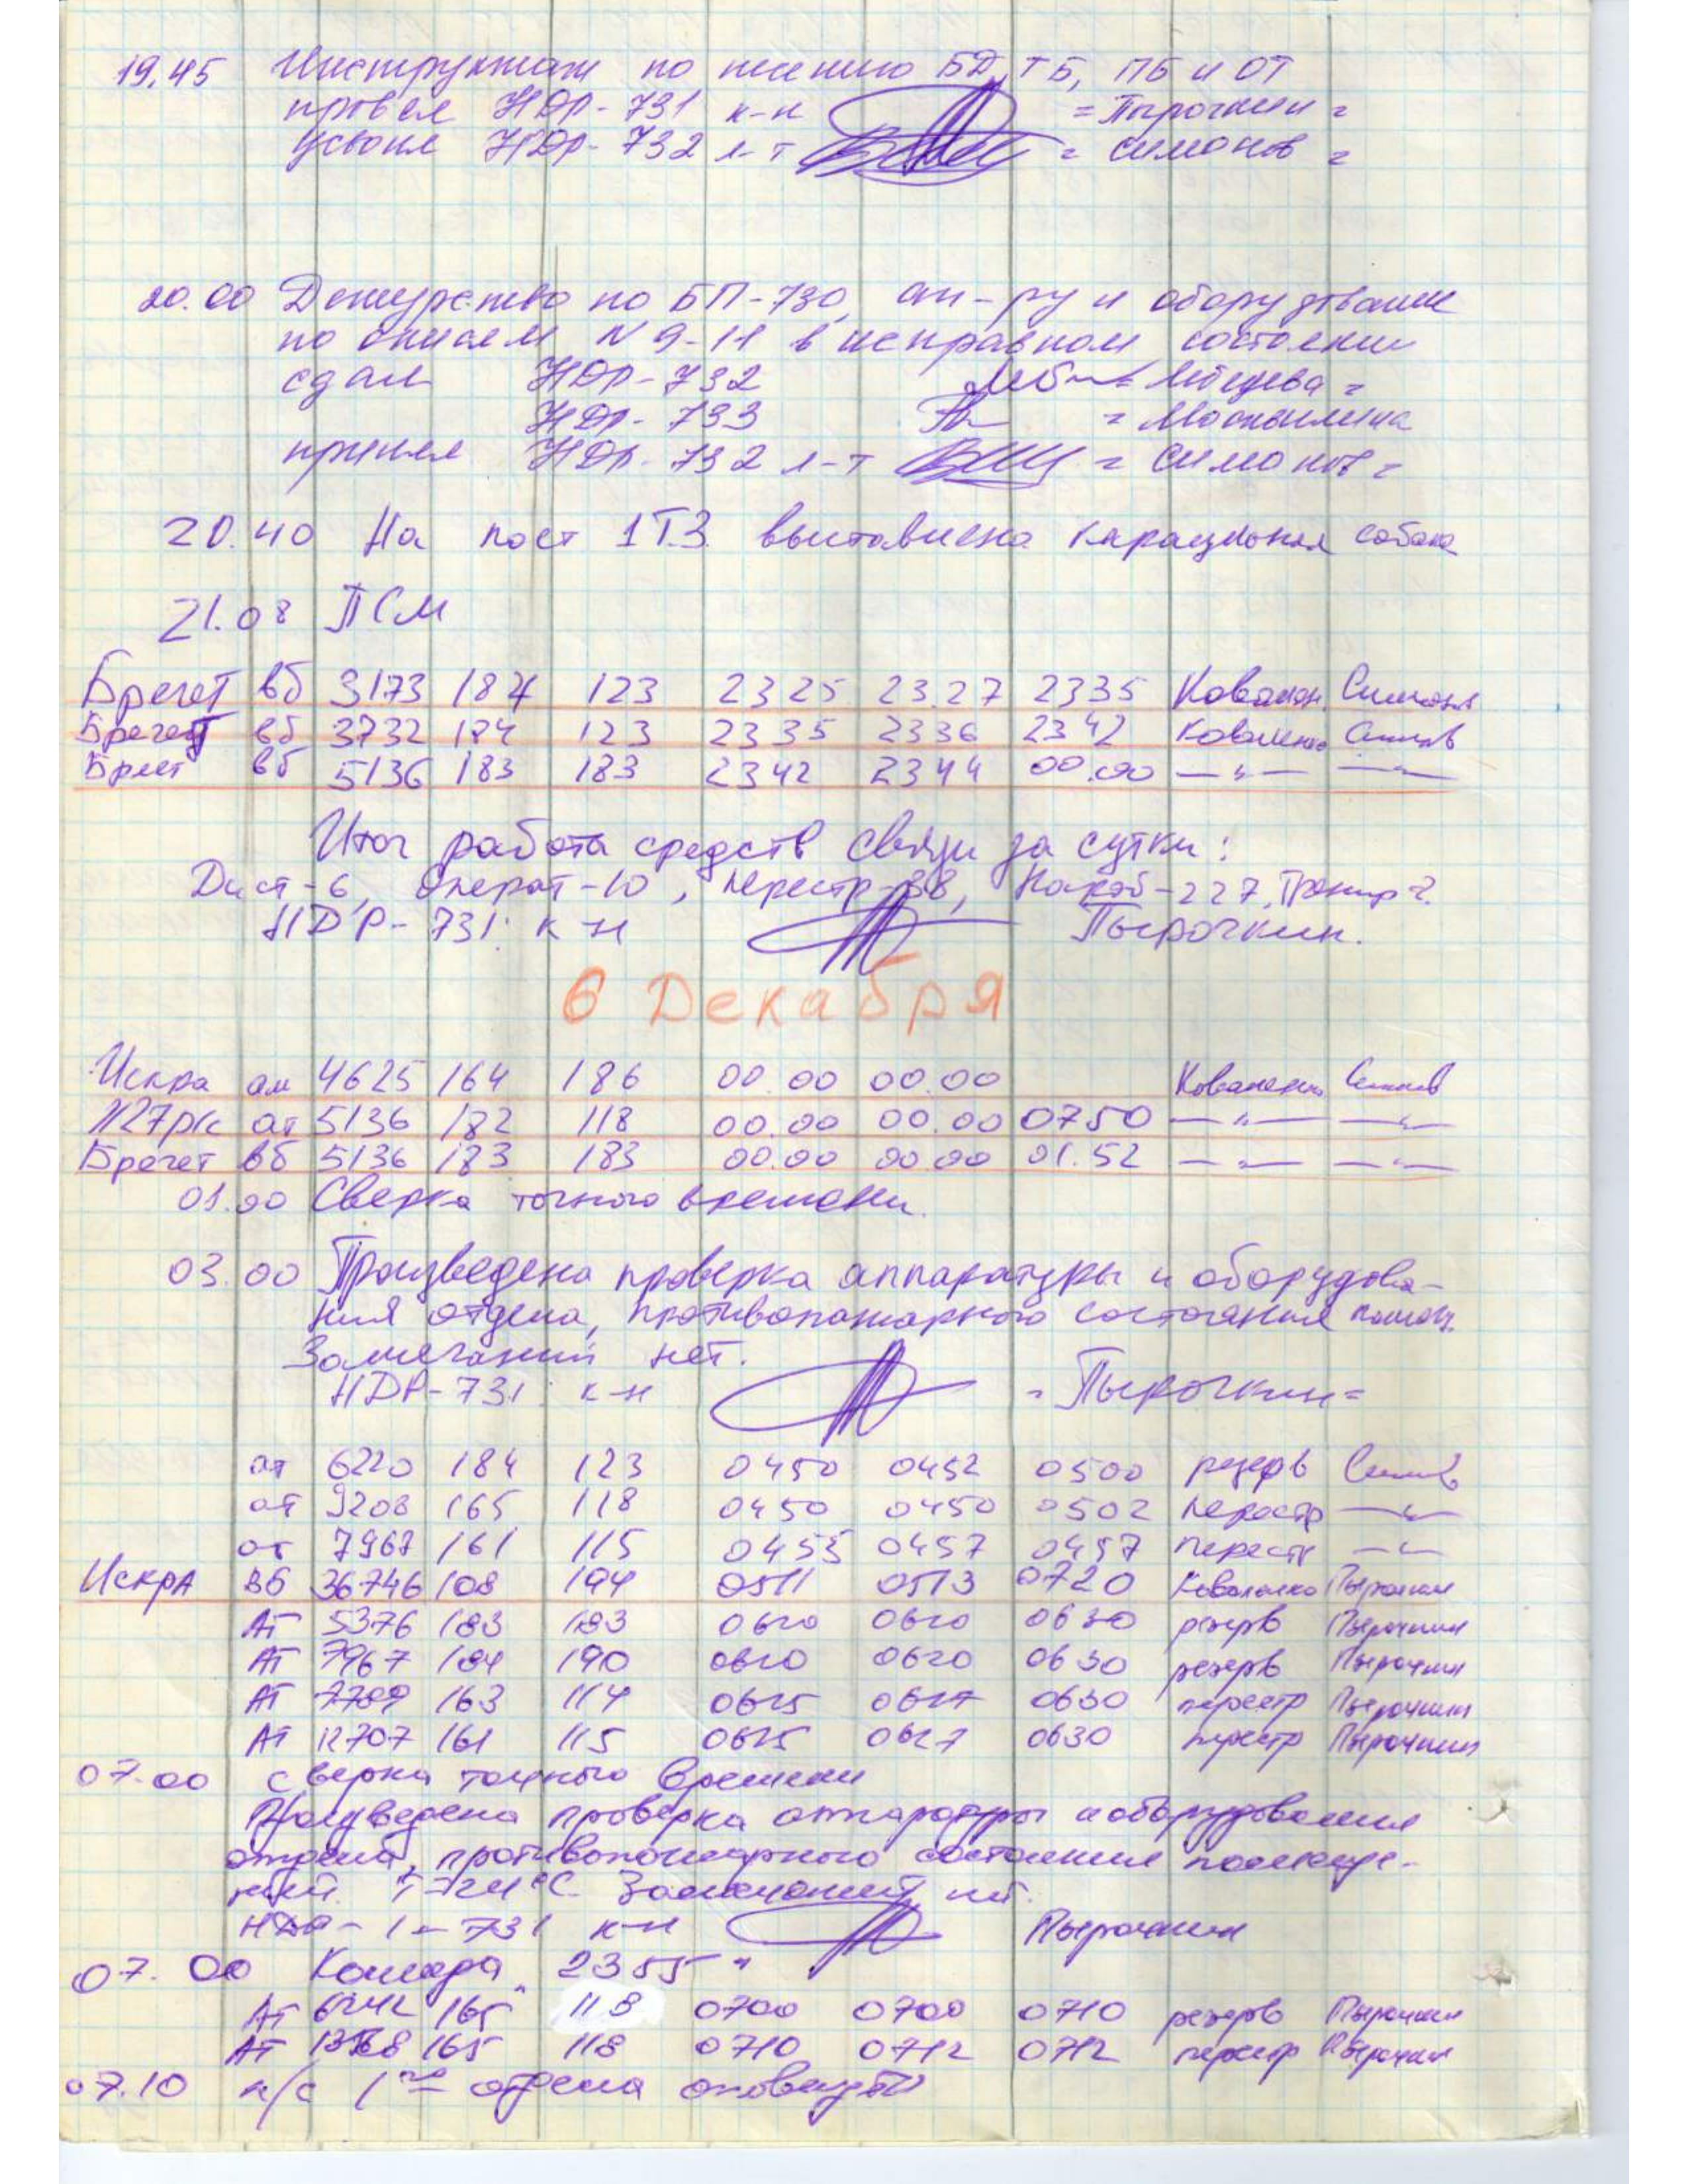 19.45 Инструктаж по несению БД, ТБ, ПБ и ОТ
провел НДР-731 к-н = Пырочкин =
усвоил НДР-732 л-т = Симонов =
20.00 Дежурство по БП-730, ап-ру и оборудование
по описям N 9-11 в исправном состоянии
сдал НДР-732 = Лебедева =
НДР-733 = Москвилина
принял НДР-732 л-т = Симонов =
20.40 На пост 1Т.З. выставлена караульная собака
21.08 ПСМ
Брегет вб 3173 184 123 2325 23.27 2335 Ковален Симонов
Брегет вб 3732 184 123 2335 2336 2342 Коваленко Симонов
Брегет вб 5136 183 183 2342 2344 00.00 — " — — " —
Итог работа средств связи за сутки:
Дист-6, Операт-10, перестр-38, Накоб-227, Тренир 2.
НДР-731 к-н Пырочкин.
6 Декабря
Искра ам 4625 164 186 00.00 00.00 Коваленко Симонов
К27р/с ат 5136 182 118 00.00 00.00 0750 — " — — " —
Брегет вб 5136 183 183 00.00 00.00 01.52 — " — — " —
01.00 Сверка точного времени.
03.00 Произведена проверка аппаратуры и оборудова-
ния отдела, противопожарного состояния помещ.
Замечаний нет.
НДР-731 к-н = Пырочкин =
ат 6220 184 123 0450 0452 0500 резерв Симонов
ат 9208 165 118 0450 0450 0502 перестр — " —
ат 7967 161 115 0455 0457 0457 перестр — " —
Искра вб 36746 108 194 0511 0513 0720 Коваленко Пырочкин
АТ 5376 183 183 0620 0620 0630 резерв Пырочкин
АТ 7967 184 190 0620 0620 0630 резерв Пырочкин
АТ 7789 163 114 0625 0627 0630 перестр Пырочкин
АТ 12707 161 115 0625 0627 0630 перестр Пырочкин
07.00 сверка точного времени
Произведена проверка аппаратуры и оборудования
отдела, противопожарного состояния помеще-
ний. T=24°C. Замечаний нет.
НДР-1-731 к-н Пырочкин
07.00 Команда "2355"
АТ 6242 165 118 0700 0700 0710 резерв Пырочкин
АТ 165 118 0710 0712 0712 перестр Пырочкин
07.10 л/с 1го отдела оповещён